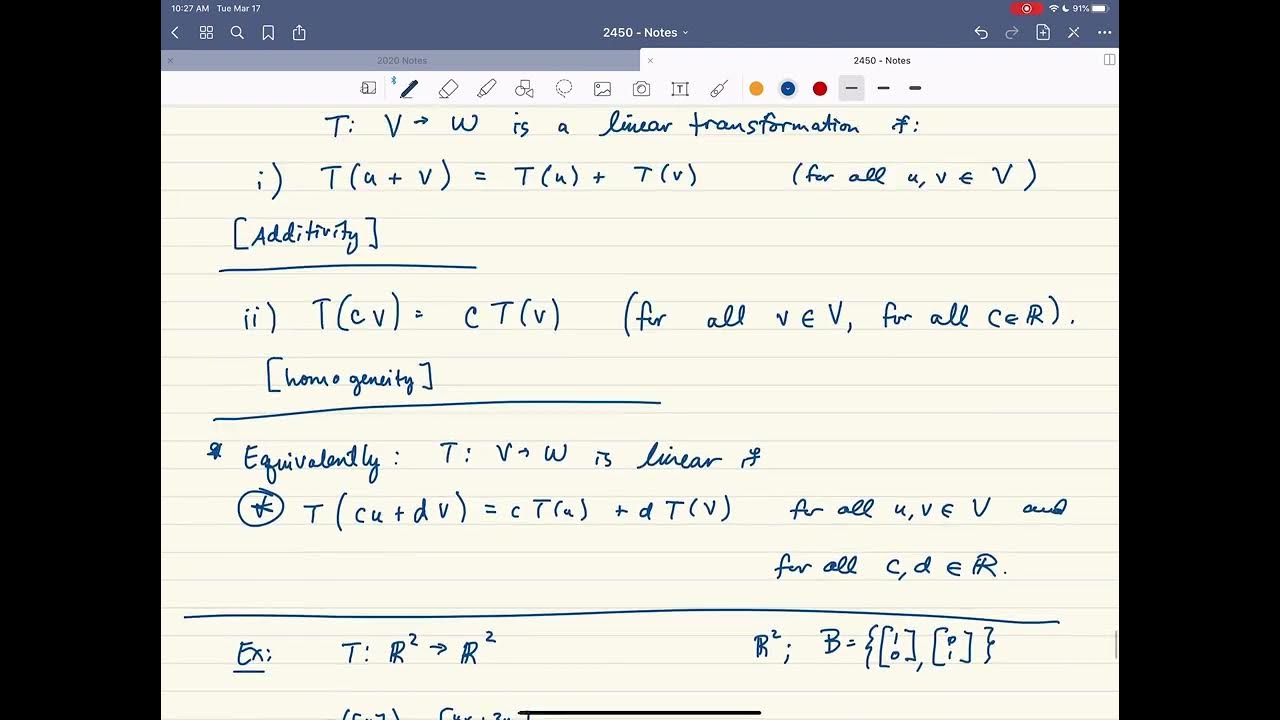 10:27 AM Tue Mar 17
91%
2450 - Notes
2020 Notes
2450 - Notes
T: V → W is a linear transformation if:
i) T(u + v) = T(u) + T(v) (for all u, v ∈ V)
[Additivity]
ii) T(cv) = c T(v) (for all v ∈ V, for all c ∈ ℝ).
[homogeneity]
* Equivalently: T: V → W is linear if
* T(cu + dv) = c T(u) + d T(v) for all u, v ∈ V and
for all c, d ∈ ℝ.
Ex: T: ℝ² → ℝ² ℝ²; B = {[1 0], [0 1]}